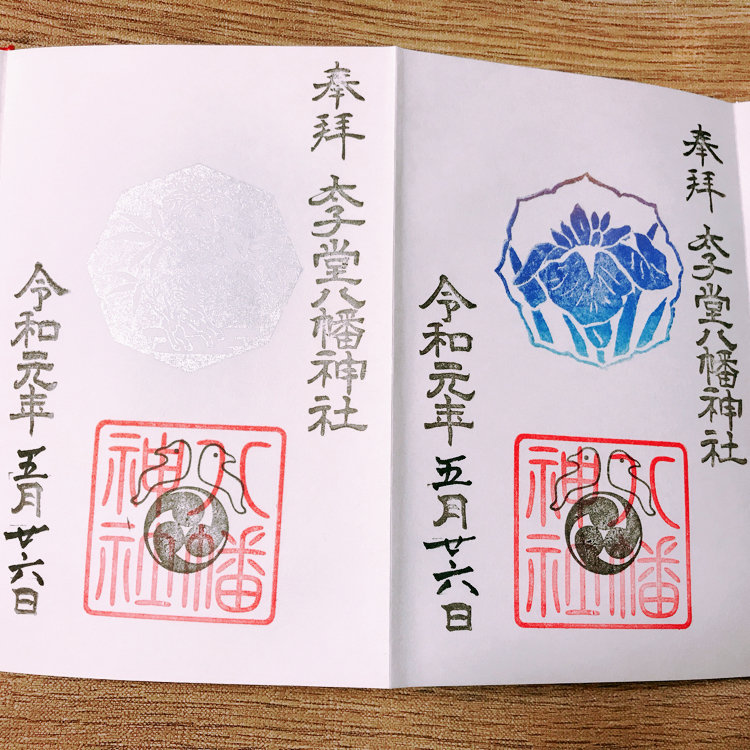 奉拝
太子堂八幡神社
令和元年五月廿六日
八幡
神社
奉拝
太子堂八幡神社
令和元年五月廿六日
八幡
神社